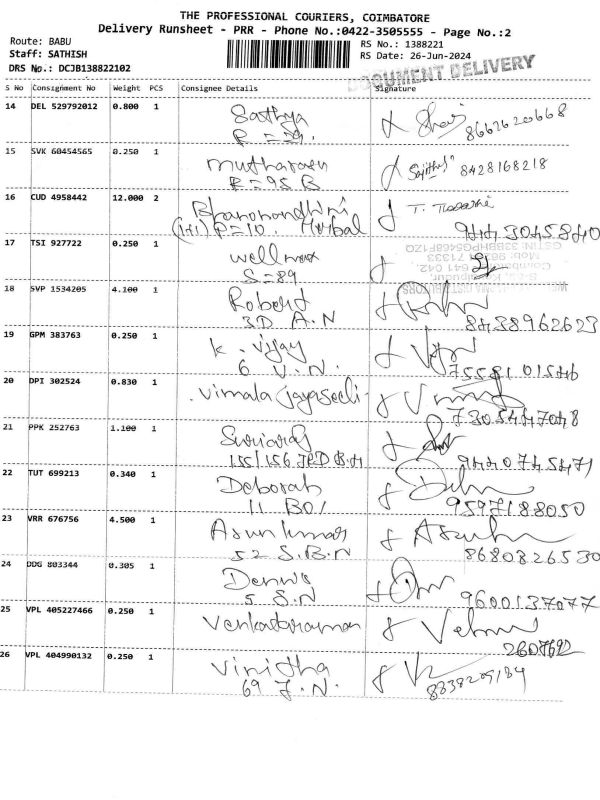 THE PROFESSIONAL COURIERS, COIMBATORE
Delivery Runsheet - PRR - Phone No.:0422-3505555 - Page No.:2
Route: BABU
RS No.: 1388221
Staff: SATHISH
RS Date: 26-Jun-2024
DRS No.: DCJB138822102
DOCUMENT DELIVERY
S No Consignment No Weight PCS Consignee Details Signature
14 DEL 529792012 0.800 1 Sathya
8662620668
15 SVK 60454565 0.250 1
R=95 B
8428168218
16 CUD 4958442 12.000 2
P=10. Herbal
17 TSI 927722 0.250 1
S=89
18 SVP 1534205 4.100 1 Robert
3D A.N
8438962623
19 GPM 383763 0.250 1 K. Vijay
6 V.N.
75581 01546
20 DPI 302524 0.830 1 Vimala Jayaseeli
7305447048
21 PPK 252763 1.100 1
155/156
9440745471
22 TUT 699213 0.340 1 Deborah
11 B01
9597188050
23 VRR 676756 4.500 1 Arunkumar
52 S.B.N
8680826530
24 DDG 803344 0.305 1 Dennis
5 S.N
9600137077
25 VPL 405227466 0.250 1 Venkataraman
2607692
26 VPL 404990132 0.250 1 Vinitha
69 J.N.
8838209184